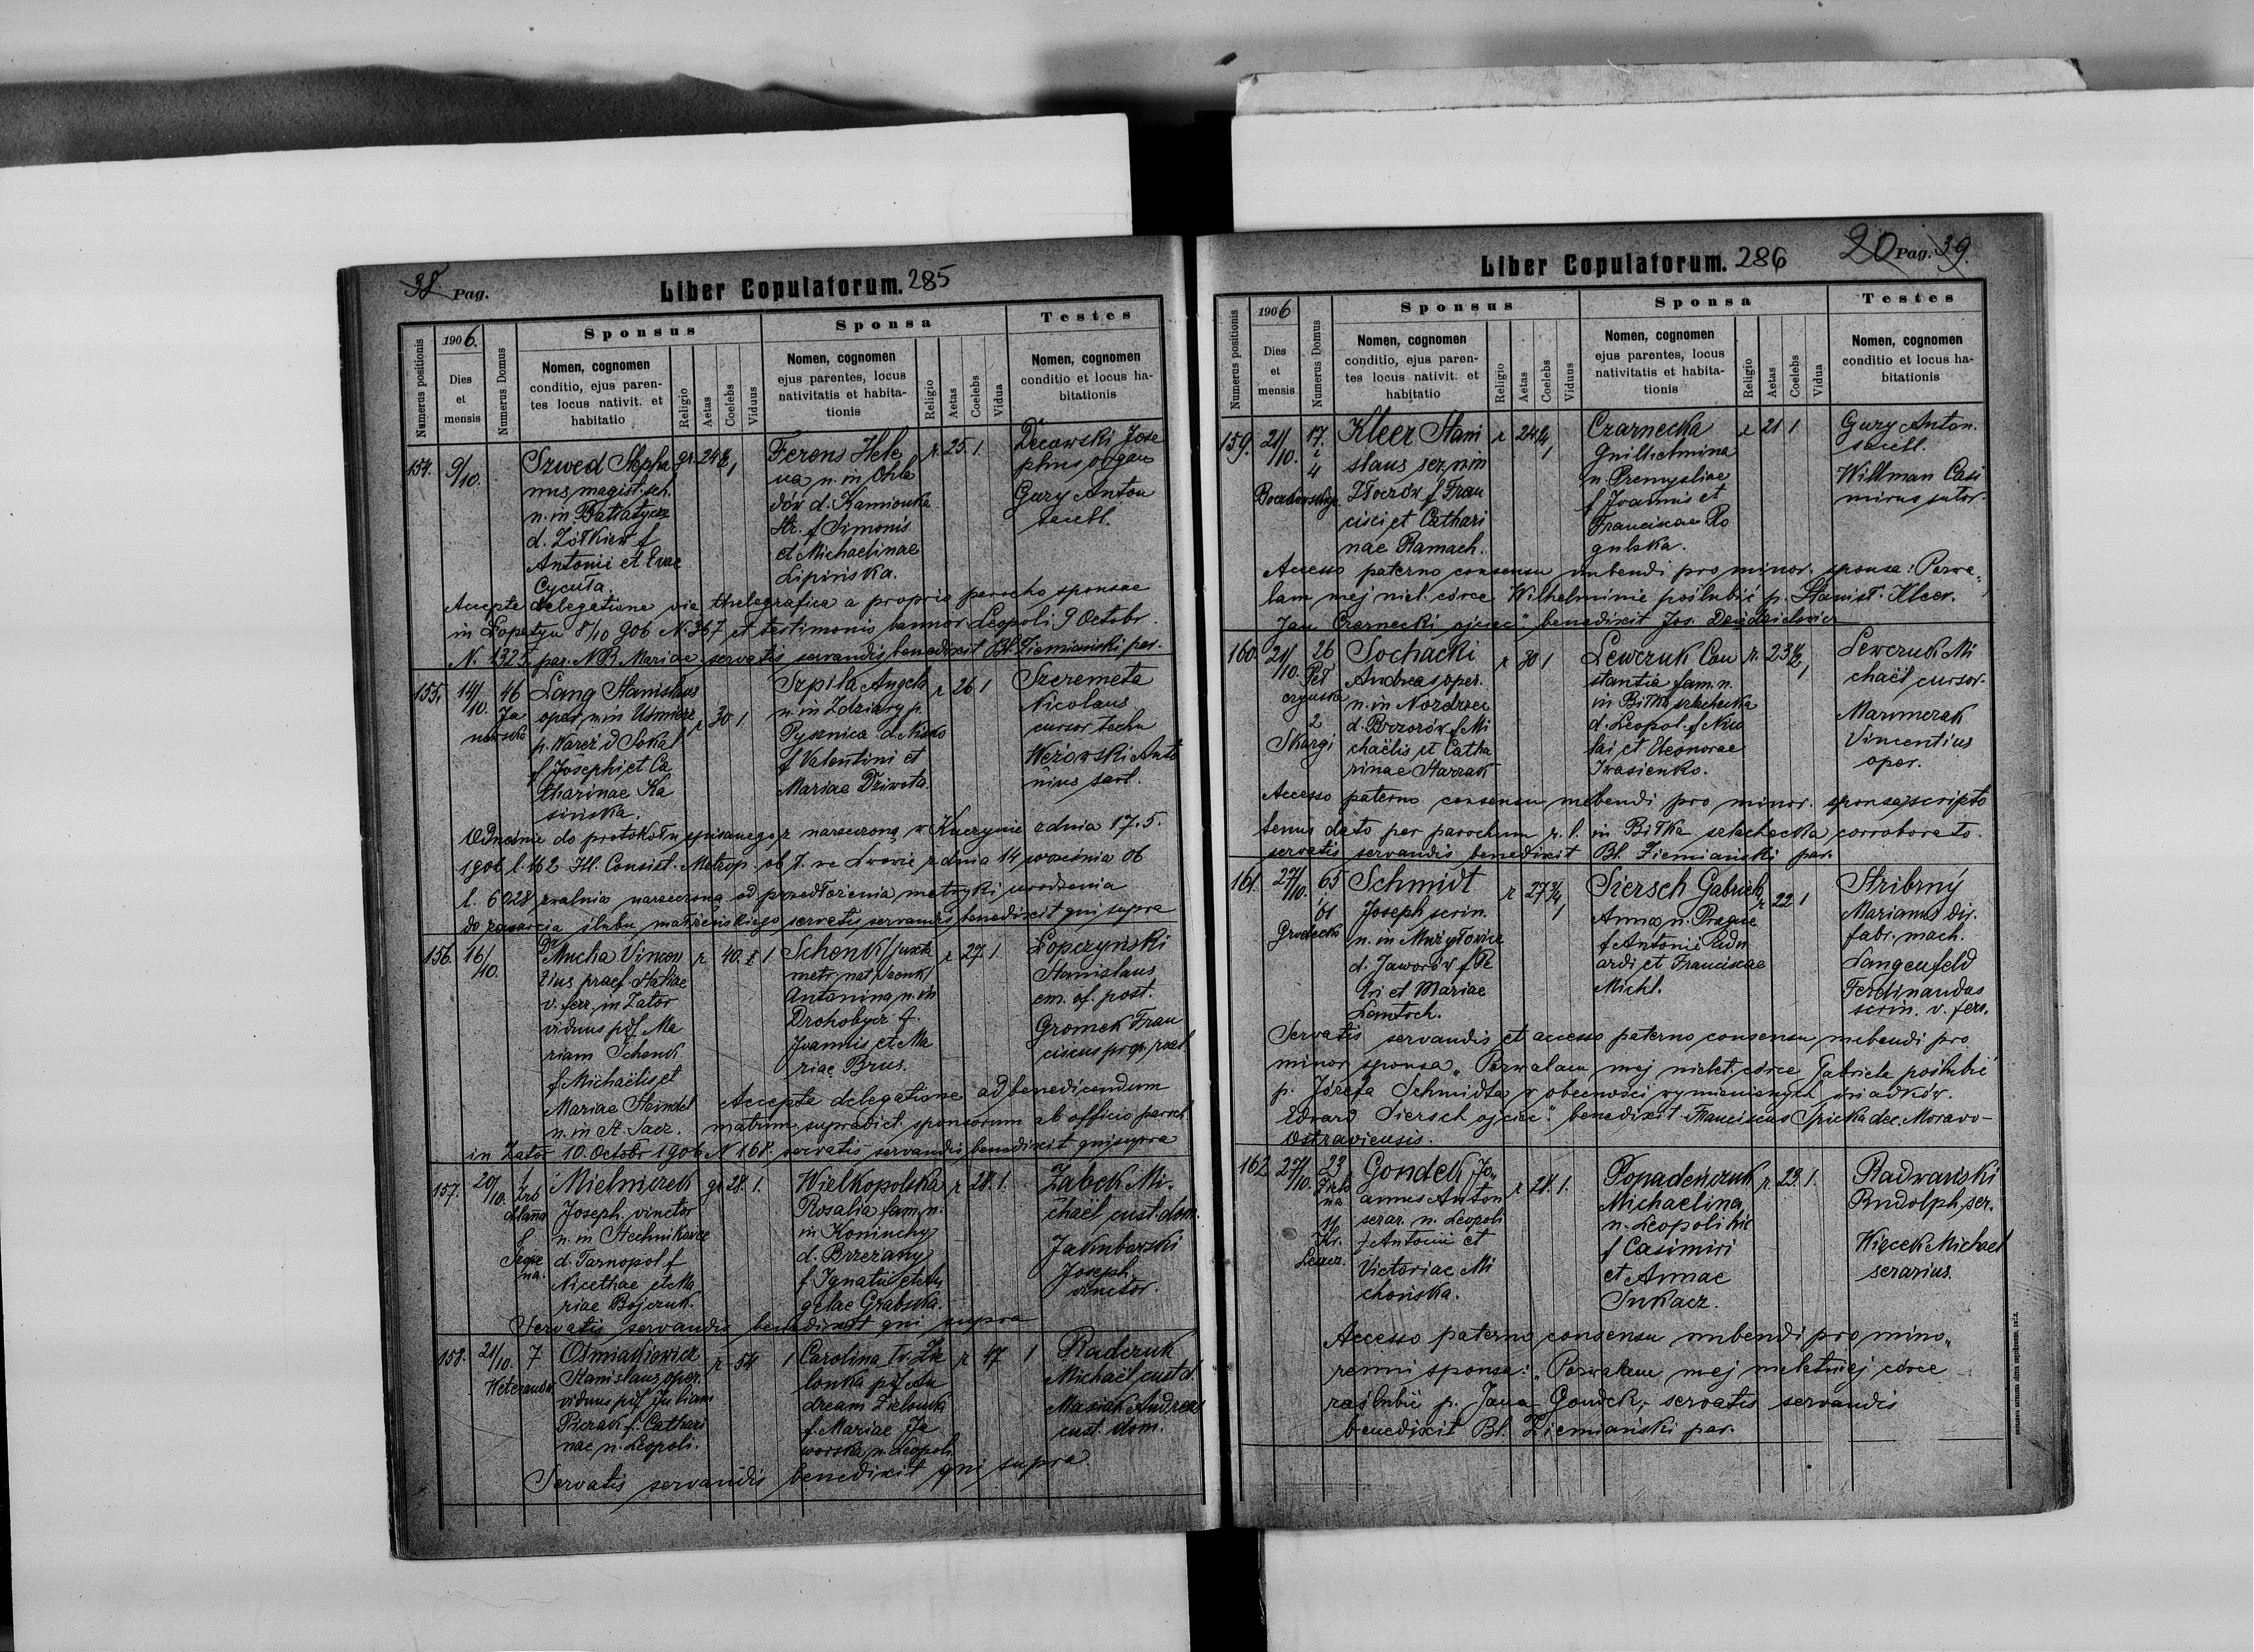 38 Pag.
Liber Copulatorum. 285
Numerus positionis
1906.
Dies
et
mensis
Numerus Domus
Sponsus
Nomen, cognomen
conditio, ejus paren-
tes locus nativit. et
habitatio
Religio
Aetas
Coelebs
Viduus
Sponsa
Nomen, cognomen
ejus parentes, locus
nativitatis et habita-
tionis
Religio
Aetas
Coelebs
Vidua
Testes
Nomen, cognomen
conditio et locus ha-
bitationis
154. 9/10.
Szwed Stepha
nus magist. sch.
n. in Batiatycze
d. Żółkiew f
Antonii et Evae
Cycuła
gr. 24 1/2 1
Ferens Hele
na n. in Ohla
dów d. Kamionka
Str. f Simonis
et Michaelinae
Lipińska.
r. 25. 1.
Decowski Jose
phus organ
Gury Anton
sacell.
Accepta delegatione via thelegrafica a proprio parocho sponsae
in Łopatyn 8/10 906 N. 367 et testimonio bannor. Leopoli 9 Octobr.
N. 1325 par. N B. Mariae servatis servandis benedixit Bł. Ziemiański par.
155. 14/10. 46
Ja
nowska
Lang Stanislaus
oper. n. in Uśmierz
p. Waręż d Sokal
f Josephi et Ca
tharinae Ka
sińska.
r 30 1.
Szpila Angela
n. in Zdziary p.
Pysznica d. Nisko
f Valentini et
Mariae Dziwota.
r 26 1
Szeremeta
Nicolaus
cursor techn
Weżowski Anto
nius sart.
Odnośnie do protokołu spisanego z narzeczoną w Knerynie z dnia 17. 5.
1906 l. 162 Ill. Consist. Metrop. ob. ł. we Lwowie z dnia 14 września 06
l. 6028 zwalnia narzeczoną od przedłożenia metryki urodzenia
do zawarcia ślubu małżeńskiego servatis servandis benedixit qui supra
156. 16/10.
Dr Mucha Vincen
tius praef. stathae
v. ferr. in Zator
viduus pdf Ma
riam Schenk
f Michaëlis et
Mariae Steindel
n. in St. Sącz.
r 40. 1
Schenk /juxta
metr. nat. Szenk/
Antonina n. in
Drohobycz f.
Joannis et Ma
riae Brus.
r 27. 1.
Łopczyński
Stanislaus
em. of. post.
Gromek Fran
ciscus
Accepta delegatione ad benedicendum
matrim. supradict. sponsorum ab officio paroch.
in Zator 10. Octobr 1906 N 168. servatis servandis benedixit qui supra
157. 20/10. 1
Mielniczek
Joseph. vinctor
n. in Stechnikowce
d. Tarnopol f
Nicethae et Ma
riae Bojczuk.
gr 28. 1.
Wielkopolska
Rosalia fam. n.
in Koniuchy
d. Brzeżany
f. Ignatii et An
gelae Grabska.
r 28. 1.
Żabek Mi.
chaël cust. dom.
Jakubowski
Joseph.
vinctor.
Servatis servandis benedixit qui supra
158. 21/10. 7
Weteranów
Ośmiałłowicz
Stanislaus oper.
viduus pdf Julianam
Pierzak f. Cathari
nae n. Leopoli.
r 54 1
Carolina Iv. Zie
lonka pdf An
dream Zielonka
f. Mariae Ja
worska n. Leopoli
r 47 1
Radczuk
Michaël cust d.
Masiak Andreas
cust. dom.
Servatis servandis benedixit qui supra
20 Pag. 39.
Liber Copulatorum. 286
Numerus positionis
1906
Dies
et
mensis
Numerus Domus
Sponsus
Nomen, cognomen
conditio, ejus paren-
tes locus nativit. et
habitatio
Religio
Aetas
Coelebs
Viduus
Sponsa
Nomen, cognomen
ejus parentes, locus
nativitatis et habita-
tionis
Religio
Aetas
Coelebs
Vidua
Testes
Nomen, cognomen
conditio et locus ha-
bitationis
159. 21/10. 17.
i
4
Kleer Stani
slaus ser. n. in
Złoczów f Fran
cisci et Cathari
nae Ramach.
r 24 1
Czarnecka
Guilhelmina
n. Premysliae
f Joannis et
Franciscae Ro
gulska.
r 21 1
Gury Anton.
sacell.
Willman Casi
mirus sutor.
Accesso paterno consensu nubendi pro minor. sponsa: Pozwa„
lam mej niel. córce Wilhelminie poślubić p. Stanisł. Kleer.
Jan Czarnecki ojciec" benedixit Jos. Dziędzielewicz
160. 21/10. 26
Peł
czyńska
2
Skargi
Sochacki
Andreas oper.
n. in Nozdrzec
d. Brzozów f Mi
chaëlis et Catha
rinae Starzak
r 30 1
Lewczuk Con
stantia fam. n.
in Biłka szlachecka
d. Leopol. f Nico
lai et Eleonorae
Iwasienko.
r. 23 1/2 1
Lewczuk Mi
chaël cursor.
Marmerzak
Vincentius
oper.
Accesso paterno consensu nubendi pro minor. sponsa scripto
tenus dato per parochum r. l. in Biłka szlachecka corroborato.
servatis servandis benedixit Bł. Ziemiański par.
161. 27/10. 65
i
61
Grodecka
Schmidt
Joseph scrin.
n. in Mużyłowice
d. Jaworów f Pe
tri et Mariae
Lantsch.
r 27 3/4 1
Siersch Gabriela
Anna n. Pragae
f Antonii Edu
ardi et Franciscae
Michl.
r 22 1
Stribrný
Marianus dir.
fabr. mach.
Langenfeld
Ferdinandus
scrin. v. ferr.
Servatis servandis et accesso paterno consensu nubendi pro
minor sponsa „Pozwalam mej nielet. córce Gabrieli poślubić
p. Józefa Schmidta w obecności wymienionych świadków.
Edward Siersch ojciec." benedixit Franciscus Spička dec. Moravo-
Ostraviensis.
162 27/10. 23
Zielo
na
11
Kr.
Leszcz.
Gondek Jo„
annes Anton
serar. n. Leopoli
f Antonii et
Victoriae Mi
chońska.
r 28. 1.
Popadeńczuk
Michaelina
n. Leopoli hic
f Casimiri
et Annae
Tukacz.
r. 23. 1.
Radwański
Rudolph ser.
Więcek Michael
serarius.
Accesso paterno consensu nubendi pro mino„
renni sponsa: „Pozwalam mej nieletniej córce
zaślubić p. Jana Gondek, servatis servandis
benedixit Bł. Ziemiański par.